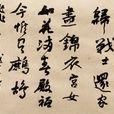 歸戰士還家
盡錦衣宮女
如花滿春殿
今惟有鷓鴣